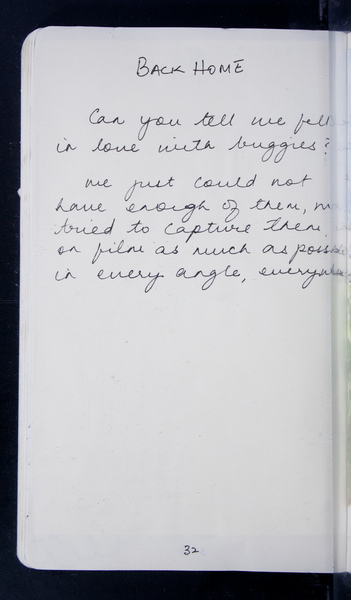 BACK HOME
Can you tell we fell
in love with buggies?
we just could not
have enough of them, we
tried to capture them,
on film as much as possible
in every angle, everywhere
32